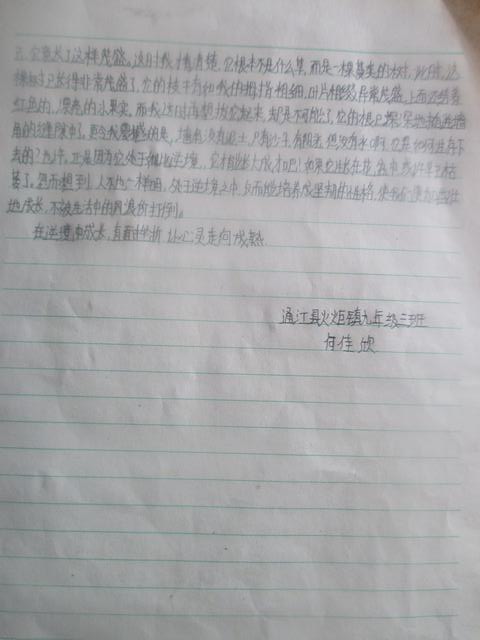 它竟长了这样茂盛。这时我才看清楚,它根本不是什么草,而是一棵的树,此时,这
棵树已长得非常茂盛了,它的枝干有和我的拇指粗细,叶片相较异常茂盛,上面还结着
红色的,漂亮的小果实,而我这时再想拔它起来,却是不可能了,它的根已深深地插进墙
角的缝隙中了,更令我震撼的是,墙角没有泥土,只有沙子,有阳光,但没有水啊,它是如何生存下
去的?也许,正是因为它处于如此逆境,它才能长大成才吧!如果它生长在花盆中或许早已枯
萎了。进而想到,人不也一样,处于逆境之中,反而能培养成坚韧的性格,使我们更加茁壮
地成长,不被生活中的风浪所打倒。
在逆境中成长,直面挫折,让心灵走向成熟。
通江县火炬镇九年级三班
何佳欣